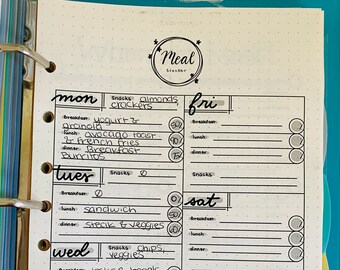 Meal
tracker
mon
Snacks: almonds,
crackers
Breakfast: yogurt &
granola
lunch: avocado toast
& french fries
dinner: Breakfast
Burritos
tues
Snacks: Ø
Breakfast: Ø
lunch: sandwich
dinner: steak & veggies
wed
Snacks: chips,
veggies
Breakfast:
fri
Snacks:
Breakfast:
lunch:
dinner:
sat
Snacks:
Breakfast:
lunch:
dinner: